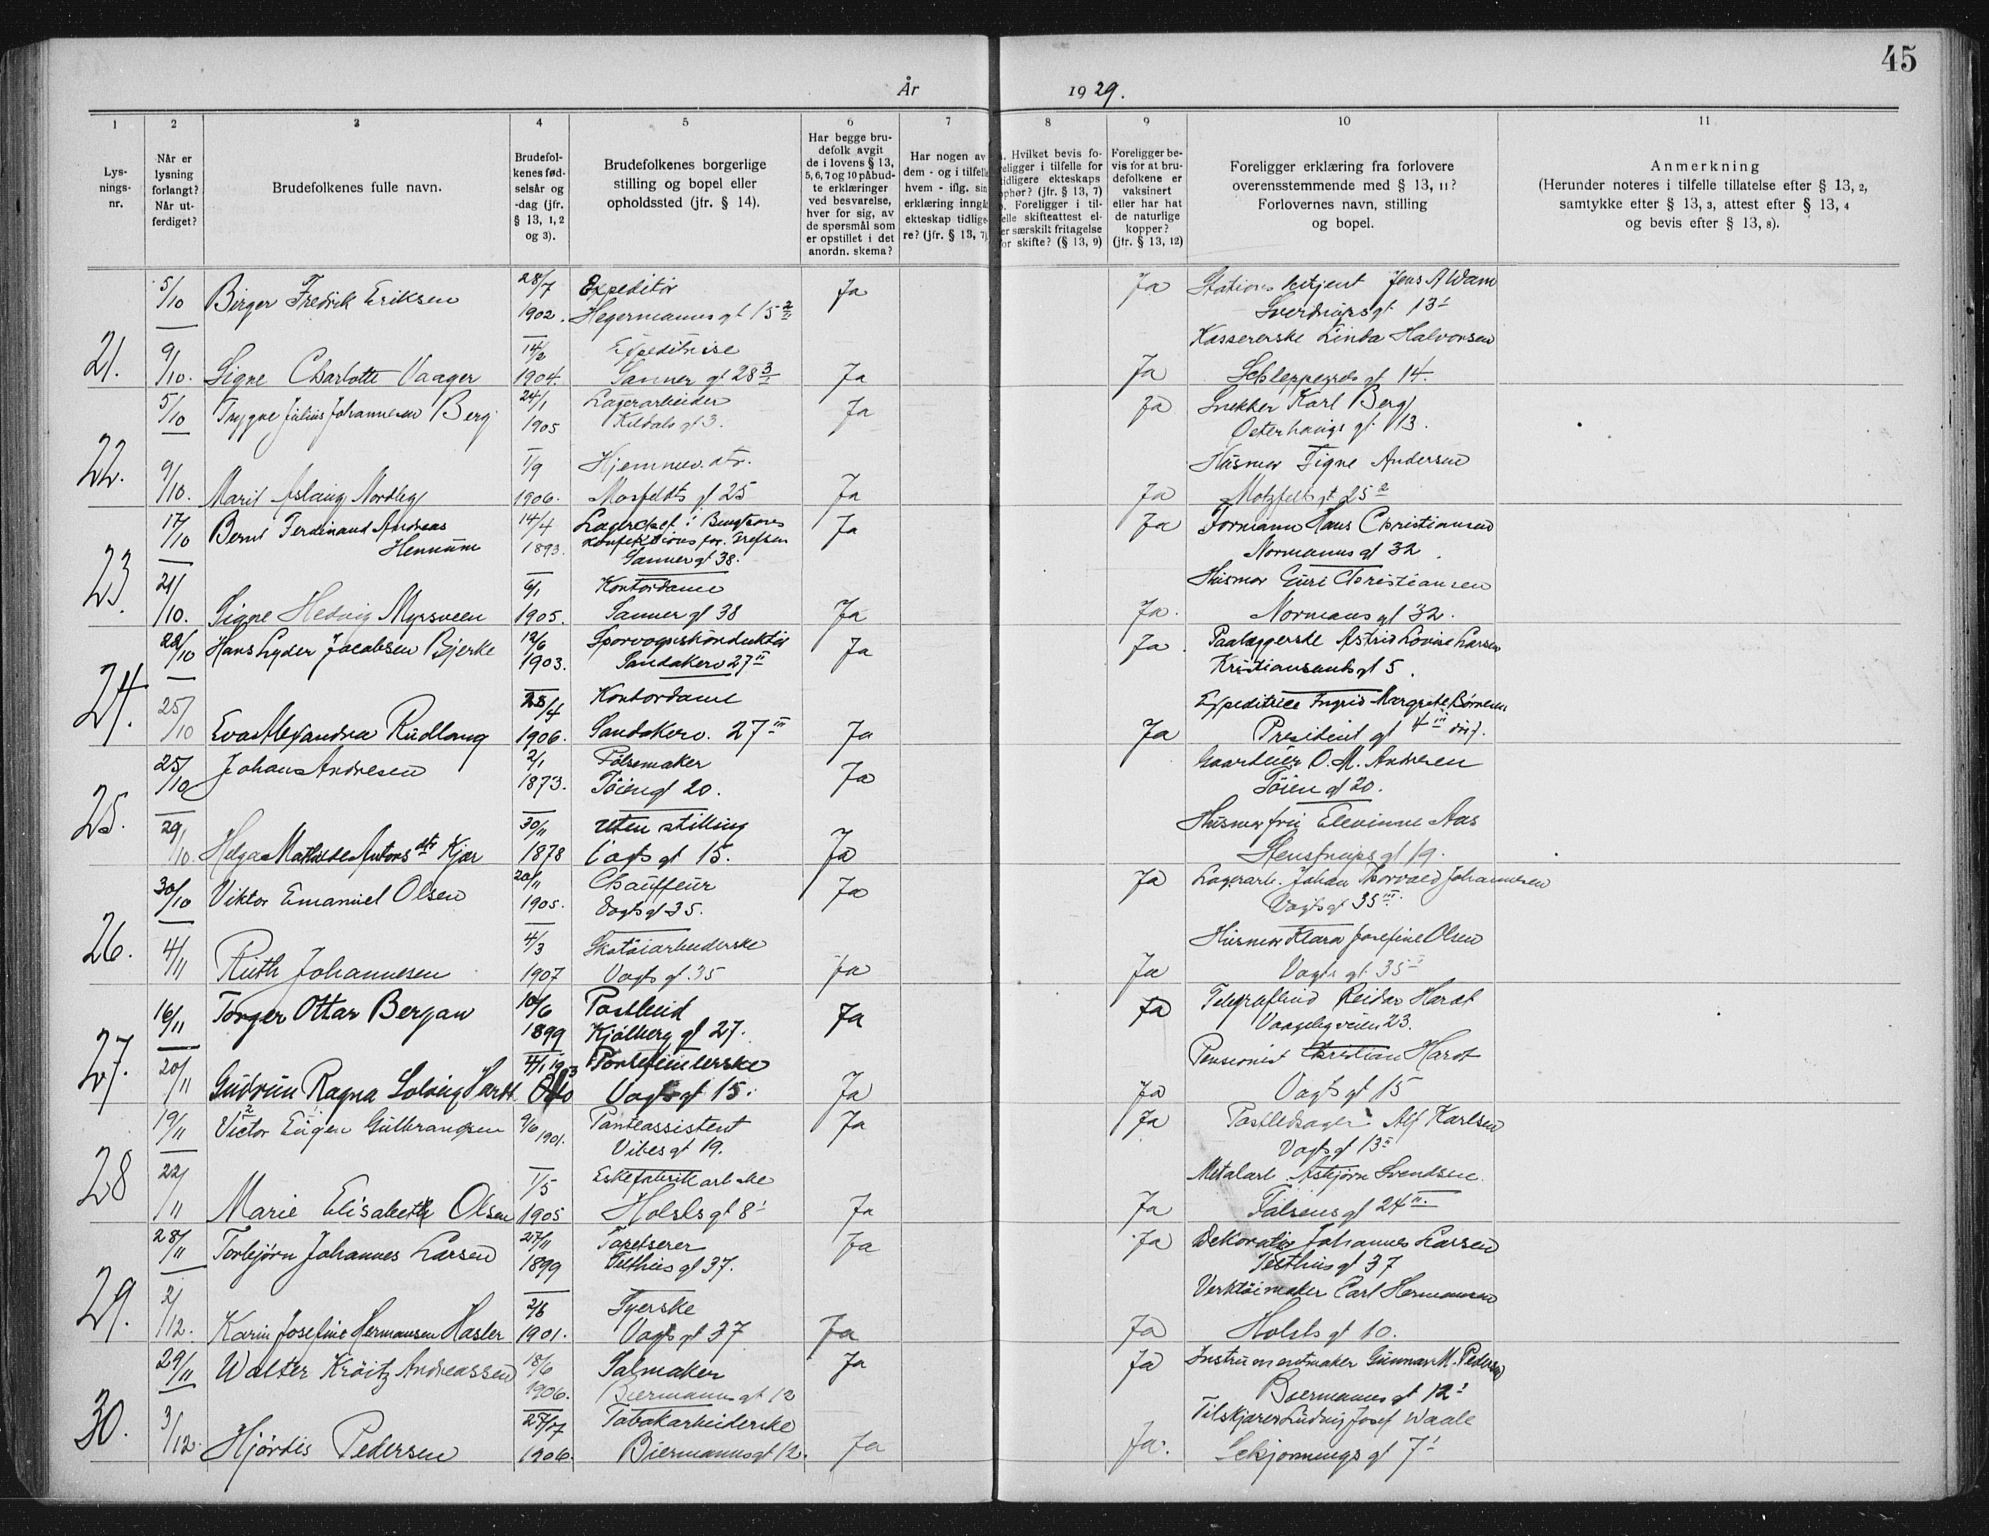 45
År 1929.
1 2 3 4 5 6 7 8 9 10 11
Lys-
nings-
nr.
Når er
lysning
forlangt?
Når ut-
ferdiget?
Brudefolkenes fulle navn.
Brudefol-
kenes fød-
selsår og
-dag (jfr.
§ 13, 1, 2
og 3).
Brudefolkenes borgerlige
stilling og bopel eller
opholdssted (jfr. § 14).
Har begge bru-
defolk avgit
de i lovens § 13,
5, 6, 7 og 10 påbud-
te erklæringer
ved besvarelse,
hver for sig, av
de spørsmål som
er opstillet i det
anordn. skema?
Har nogen av
dem - og i tilfelle
hvem - iflg. sin
erklæring inngå
ekteskap tidlige-
re? (jfr. § 13, 7)
. Hvilket bevis fo-
religger i tilfelle for
tidligere ekteskaps
ophør? (jfr. § 13, 7)
. Foreligger i til-
felle skifteattest el-
er særskilt fritagelse
for skifte? (§ 13, 9)
Foreligger be-
vis for at bru-
defolkene er
vaksinert
eller har hat
de naturlige
kopper?
(jfr. § 13, 12)
Foreligger erklæring fra forlovere
overensstemmende med § 13, 11?
Forlovernes navn, stilling
og bopel.
Anmerkning
(Herunder noteres i tilfelle tillatelse efter § 13, 2,
samtykke efter § 13, 3, attest efter § 13, 4
og bevis efter § 13, 8).
5/10 Birger Fredrik Eriksen 28/7 Expeditør Ja Ja Stationsbetjent Jens A Wam
1902. Hegermanns gt 15 Sverdrups gt 13
14/2 Expeditrise Kassererske Linda Halvorsen
21. 9/10. Signe Charlotte Vaager 1904. Sanner gt 28 Ja Ja Schleppegrels gt 14.
5/10 Trygve Julius Johannesen Berg 24/1 Lagerarbeider Ja Ja Snekker Karl Berg
1905 Kildals gt 3. Østerhaugs gt 13.
22. 9/10. 1/9 Hjemmev. dtr. Husmor Signe Andersen
Marit Aslaug Nordby 1906. Mosfeldts gt 25 Ja Ja Motzfelts gt 25
17/10 Bernt Ferdinand Andreas 14/4 Ja Ja Formann Hans Christiansen
Hennum 1893. Normanns gt 32
Sanner gt 38.
23. 21/10. 6/1 Kontordame Husmor Guri Christiansen
Signe Hedvig Myrsveen 1905. Sanner gt 38 Ja Ja. Normans gt 32.
22/10 Hans Lyder Jacobsen Bjerke 12/6 Sporvognskonduktør Ja Ja. Paalæggerske Astrid Lovise Larsen
1903. Sandakerv 27 II Kristiansands gt 5.
24. 25/10 25/4 Kontordame Expeditrice Ingrid Margrete Børresen
Eva Alexandra Rudlang 1906. Sandakerv. 27 III Ja Ja President gt 4 III
25/10 Johans Andresen 2/1 Pølsemaker Ja Gaardeier O. M. Andresen
1873. Tøiengt 20. Tøien gt 20.
25. 29/10. 30/11 Uten stilling Husmorfru Elevinne Aas
Helga Mathilde Antons dtr Kjær 1878 Vogts gt 15. Ja Stenstrups gt 19.
30/10 Viktor Emanuel Olsen 20/11 Chauffeur Ja Ja Lagerarb. Johan Thorvald Johannesen
1905. Vogts gt 35. Vogts gt 35 III.
26. 4/11 4/3 Skotøiarbeiderske Husmor Klara Josefine Olsen
Ruth Johannesen 1907 Vogts gt. 35 Ja Ja Vogts gt 35
16/11 Torger Ottar Bergan 10/6 Postbud Ja Ja Telegrafbud Reidar Hardt
1899 Kjølberg gt 27. Vaageligveien 23.
27. 20/11 4/1 1903 Portefeuillerske Pensionist Christian Hardt
Gudrun Ragna Solveig Hardt Oslo Vogts gt 15. Ja Ja Vogts gt 15
19/11 Victor Eugen Gulbrandsen 9/6 1901. Panteassistent Ja Ja Postledsager Alf Karlsen
Vibes gt 19. Vogts gt 13 II
28 22/11 1/5 Eskefabrikkarb.ske Metalarb. Asbjørn Svendsen.
Marie Elisabeth Olsen 1905 Holsts gt 8 Ja Ja Falsens gt 24 II
28/11 Torbjørn Johannes Larsen 27/11 Tapetserer Ja Ja Dekoratør Johannes Larsen
1899 Telthus gt 37. Telthus gt 37
29. 2/12. 2/6 Syerske Verktøimaker Carl Hermansen
Karin Josefine Hermansen Hasler 1901. Vogts gt 37 Ja Ja Holsts gt 10.
29/11 Walter Krøitz Andreassen 18/6 Salmaker Ja Ja Instrumentmaker Gunnar M. Pedersen
1906. Biermanns gt 12 Biermanns gt 12
30. 3/12. 27/7 Tobakarbeiderske Tilskjærer Ludvig Josef Waale
Hjørdis Pedersen 1906. Biermanns gt 12. Ja Ja. Schjønnings gt 7